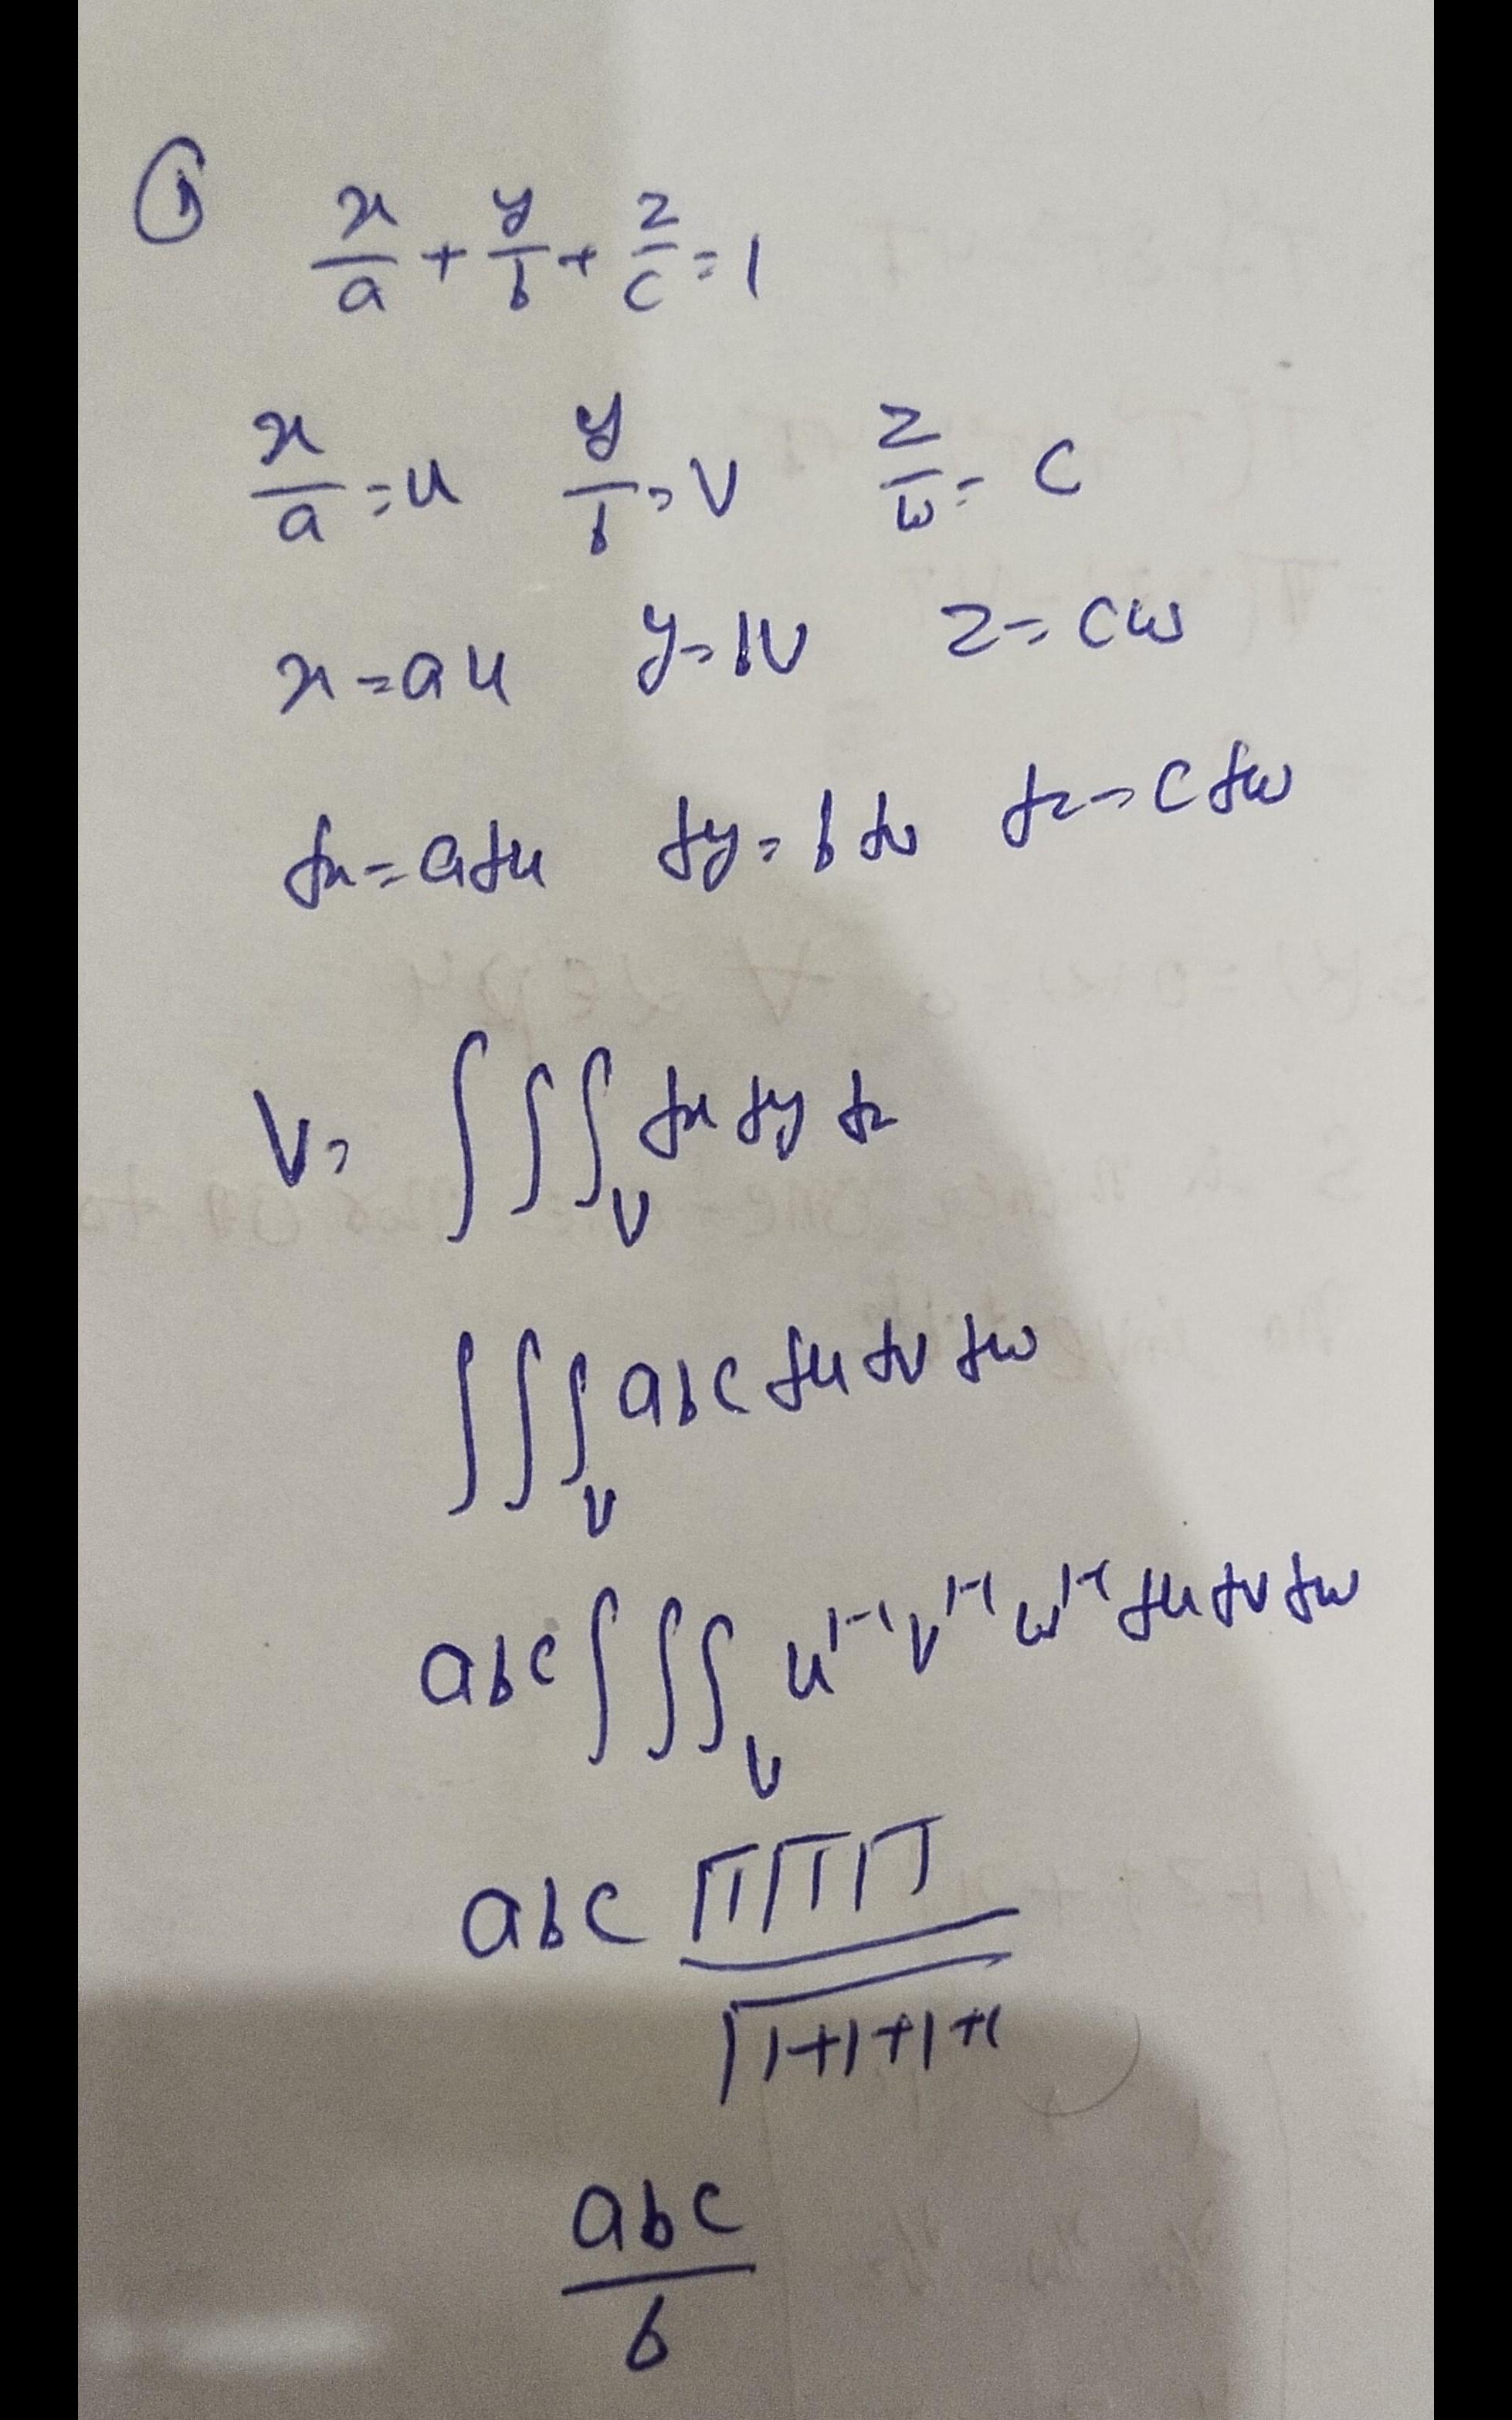 ① x/a + y/b + z/c = 1
x/a = u y/b = v z/w = c
x = au y = bv z = cw
dx = adu dy = b dv dz = c dw
V = ∫∫∫_V dx dy dz
∫∫∫_V abc du dv dw
abc ∫∫∫_V u^{1-1} v^{1-1} w^{1-1} du dv dw
abc Γ1 Γ1 Γ1 / Γ1+1+1+1
abc / 6